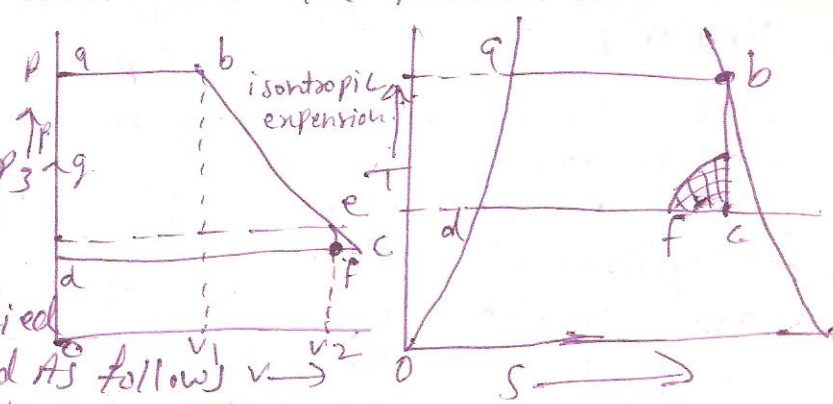 P a b
isontropic
expension
P
P3 g
e
d f c
ied
o V1 V2
d As follows V
a b
T
d f c
O
S